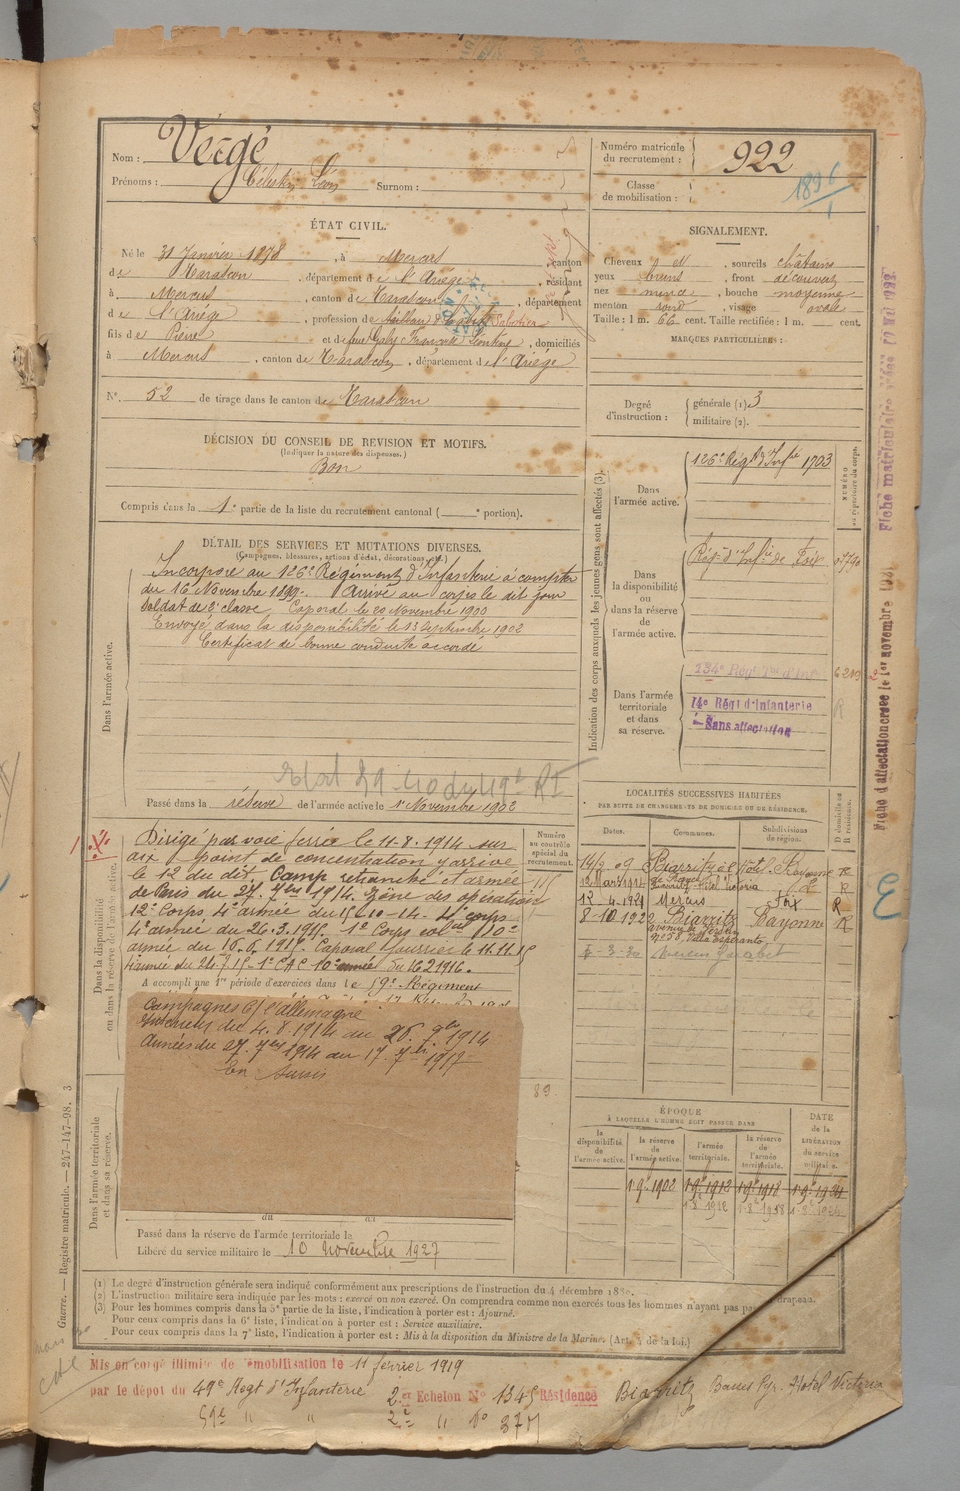 Nom : Vergé
Prénoms : Célestin Léon Surnom :
Numéro matricule du recrutement : 922
Classe de mobilisation :
1896/1
ÉTAT CIVIL.
Né le 31 Janvier 1878, à Mercus, canton
de Tarascon, département de l'Ariège, résidant
à Mercus, canton de Tarascon, département
de l'Ariège, profession de Sabotier
fils de Pierre et de feu Françoise, domiciliés
à Mercus, canton de Tarascon, département de l'Ariège
N° 52 de tirage dans le canton de Tarascon
SIGNALEMENT.
Cheveux et sourcils châtains
yeux bruns, front découvert
nez mince, bouche moyenne
menton rond, visage ovale
Taille : 1 m. 66 cent. Taille rectifiée : 1 m. cent.
MARQUES PARTICULIÈRES :
Degré d'instruction : générale (1). 3
militaire (2).
DÉCISION DU CONSEIL DE REVISION ET MOTIFS.
(Indiquer la nature des dispenses.)
Bon
Compris dans la 1e partie de la liste du recrutement cantonal ( e portion).
DÉTAIL DES SERVICES ET MUTATIONS DIVERSES.
(Campagnes, blessures, actions d'éclat, décorations, etc.)
Dans l'armée active.
Incorporé au 126e Régiment d'Infanterie à compter
du 16 Novembre 1899. Arrivé au corps le dit jour
Soldat de 2e classe. Caporal le 20 Novembre 1900
Envoyé dans la disponibilité le 13 Septembre 1902
Certificat de bonne conduite accordé
Passé dans la réserve de l'armée active le 1er Novembre 1902
Indication des corps auxquels les jeunes gens sont affectés (3).
NUMÉRO au répertoire du corps.
Dans l'armée active.
126e Régt d'Infie 1703
Dans la disponibilité ou dans la réserve de l'armée active.
Régt d'Infie de Foix
Dans l'armée territoriale et dans sa réserve.
134e Régt
14e Régt d'Infanterie
Sans affectation
Fiche matriculaire
Fiche d'affectation créée le 1er novembre
Dans la disponibilité ou dans la réserve de l'armée active.
Numéro au contrôle spécial du recrutement.
Dirigé par voie ferrée le 11-8-1914 sur
point de concentration y arrivé
le 12 du dit. Camp retranché et armée
de Paris du 27. 7bre 1914. Zône des opérations
12e Corps, 4e armée du
4e armée du 26.3.1915. 1e Corps colal 10e
armée du 16.6.1915. Caporal fourrier le 11.11.15
1e CAC 10e armée du 16 2 1916.
A accompli une 1re période d'exercices dans le 59e Régiment
Campagnes c/ l'Allemagne
Intérieur du 4.8.1914 au 26. 7bre 1914
Armées du 27. 7bre 1914 au 17 7bre 1917
En sursis
89
Dans l'armée territoriale et dans sa réserve.
du au
Passé dans la réserve de l'armée territoriale le
Libéré du service militaire le 10 novembre 1927
LOCALITÉS SUCCESSIVES HABITÉES
PAR SUITE DE CHANGEMENTS DE DOMICILE OU DE RÉSIDENCE.
Dates. Communes. Subdivisions de région. D domicile ou R résidence.
14/9 09 Biarritz Bayonne R
Biarritz Hôtel Victoria R
12-4-1921 Mercus Foix R
8-10 1922 Biarritz Bayonne R
avenue de Verdun
n° 58, Villa Esperanto
ÉPOQUE
À LAQUELLE L'HOMME DOIT PASSER DANS
la disponibilité de l'armée active.
la réserve de l'armée active.
l'armée territoriale.
la réserve de l'armée territoriale.
DATE de la LIBÉRATION du service militaire.
1-9bre 1902 1-9bre 1912 1-9bre 1918 1-9bre 1924
1-8bre 1912 1-8bre 1918 1-8bre 1924
(1) Le degré d'instruction générale sera indiqué conformément aux prescriptions de l'instruction du 4 décembre 1889.
(2) L'instruction militaire sera indiquée par les mots : exercé ou non exercé. On comprendra comme non exercés tous les hommes n'ayant pas drapeau.
(3) Pour les hommes compris dans la 5e partie de la liste, l'indication à porter est : Ajourné.
Pour ceux compris dans la 6e liste, l'indication à porter est : Service auxiliaire.
Pour ceux compris dans la 7e liste, l'indication à porter est : Mis à la disposition du Ministre de la Marine. (Art. 4 de la loi.)
Guerre. — Registre matricule. — 247-147-98. 3
Mis en congé illimité de démobilisation le 11 février 1919
par le dépôt du 49e Régt d'Infanterie 2e Echelon N° 1345 Résidence Biarritz Basses Pyr. Hotel Victoria
59e " " 2e " N°